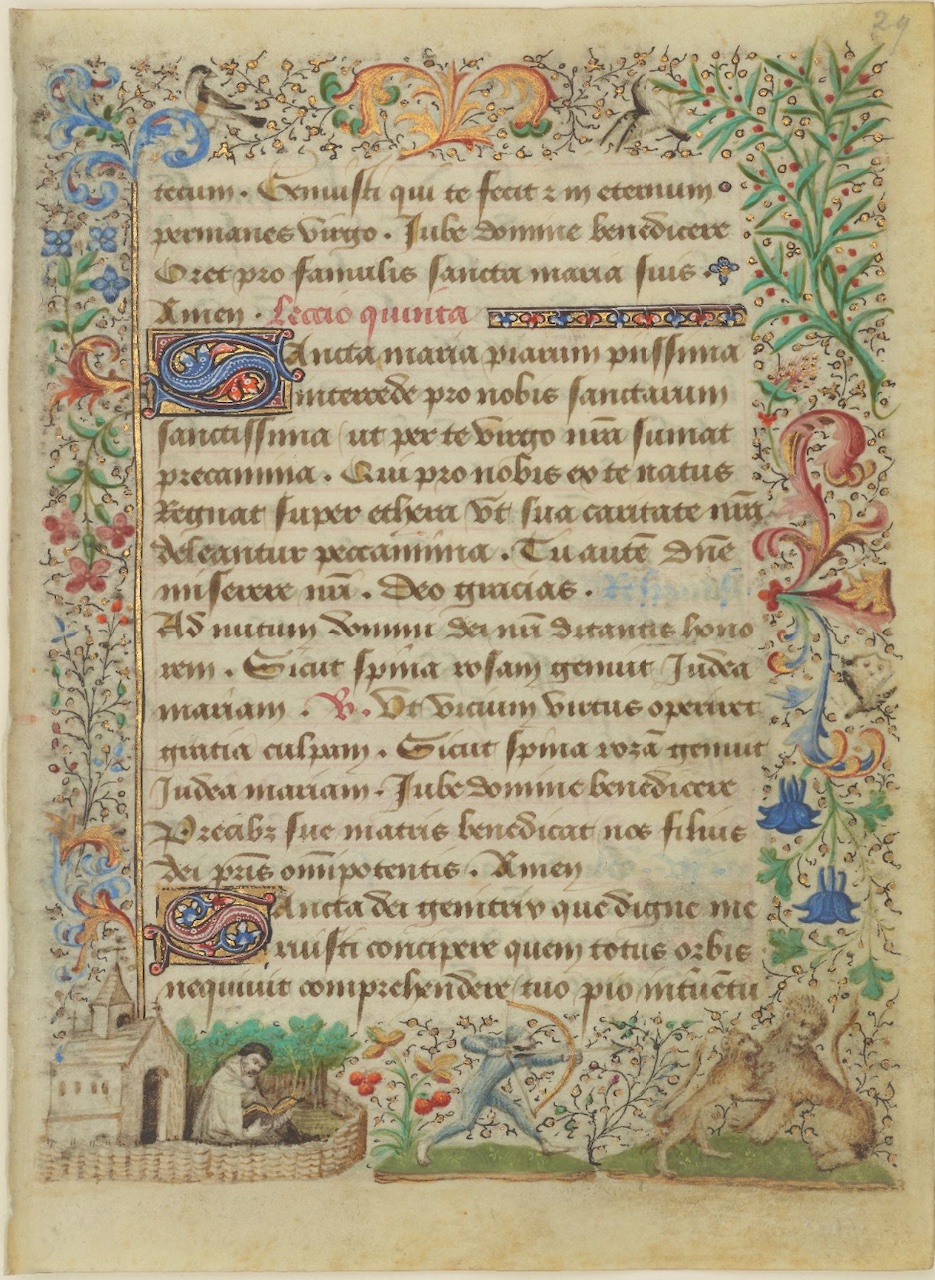 29
tecum. Genuisti qui te fecit ⁊ in eternum
permanes virgo. Iube domine benedicere
Oret pro famulis sancta maria suis
Amen. Leccio quinta
Sancta maria piarum piissima
intercede pro nobis sanctarum
sanctissima ut per te virgo nr̄a sumat
precamina. Qui pro nobis ex te natus
Regnat super ethera vt sua caritate nr̄a
deleantur peccamina. Tu autē dn̄e
miserere nr̄i. Deo gracias.
Ad nutum domini dei nr̄i ditantis hono
rem. Sicut spina rosam genuit Iudea
mariam. R̸. Vt vicium virtus operiret
gratia culpam. Sicut spina rozā genuit
Iudea mariam. Iube domine benedicere
Precibz sue matris benedicat nos filius
dei pr̄is omīpotentis. Amen
Sancta dei genitrix que digne me
ruisti concipere quem totus orbis
nequiuit comprehendere tuo pio intuētu